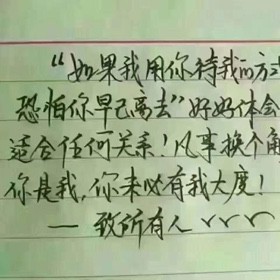 “如果我用你待我的方式
恐怕你早已离去”好好体会
适合任何关系！凡事换个角
你是我，你未必有我大度！
— 致所有人